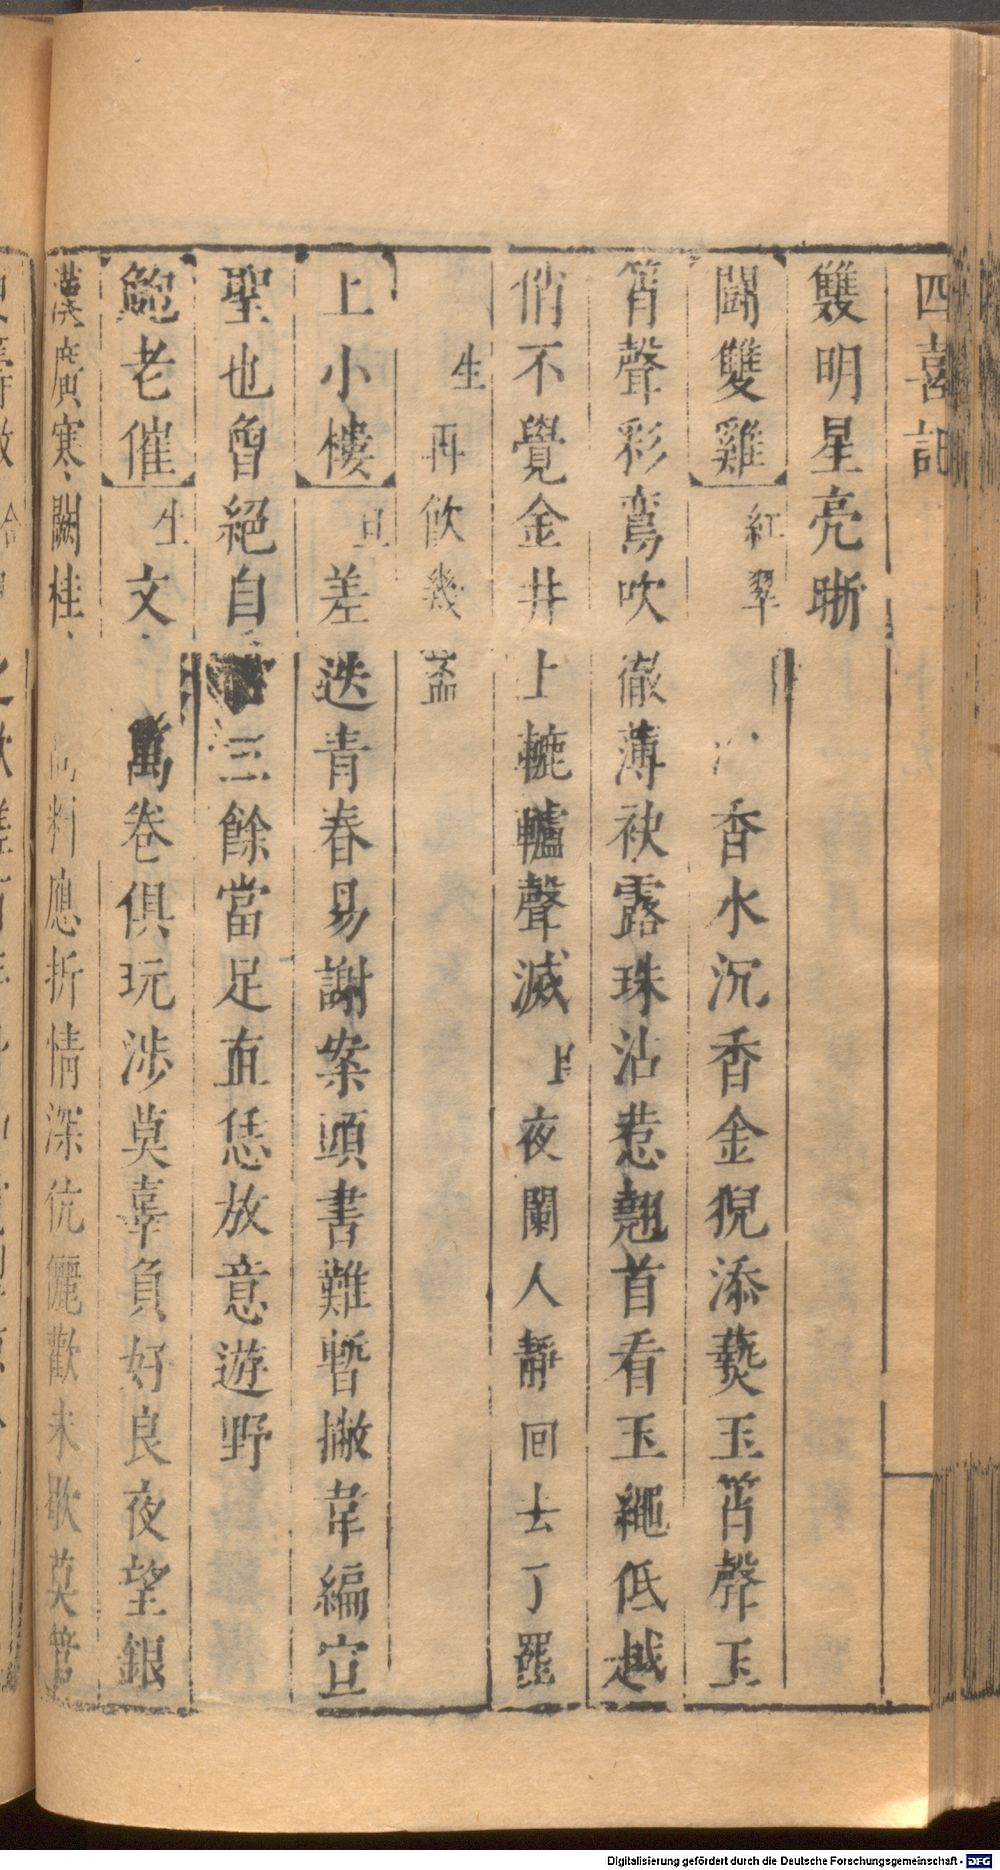 四喜記
雙明星亮晣
鬭雙雞 紅翠 香水沉香金猊添爇玉筲聲玉
筲聲彩鸞吹徹薄袂露珠沾惹翹首看玉繩低越
俏不覺金井上轆轤聲滅 旦夜闌人靜回去了罷
生再飲幾盃
上小樓 旦差迭青春易謝案頭書難暫撇韋編宣
聖也曾絕自 三餘當足直恁放意遊野
鮑老催 生文 萬卷俱玩涉莫辜負好良夜望銀
漢廣寒闕桂 料應折情深伉儷歡未歇莫管
Digitalisierung gefördert durch die Deutsche Forschungsgemeinschaft - DFG